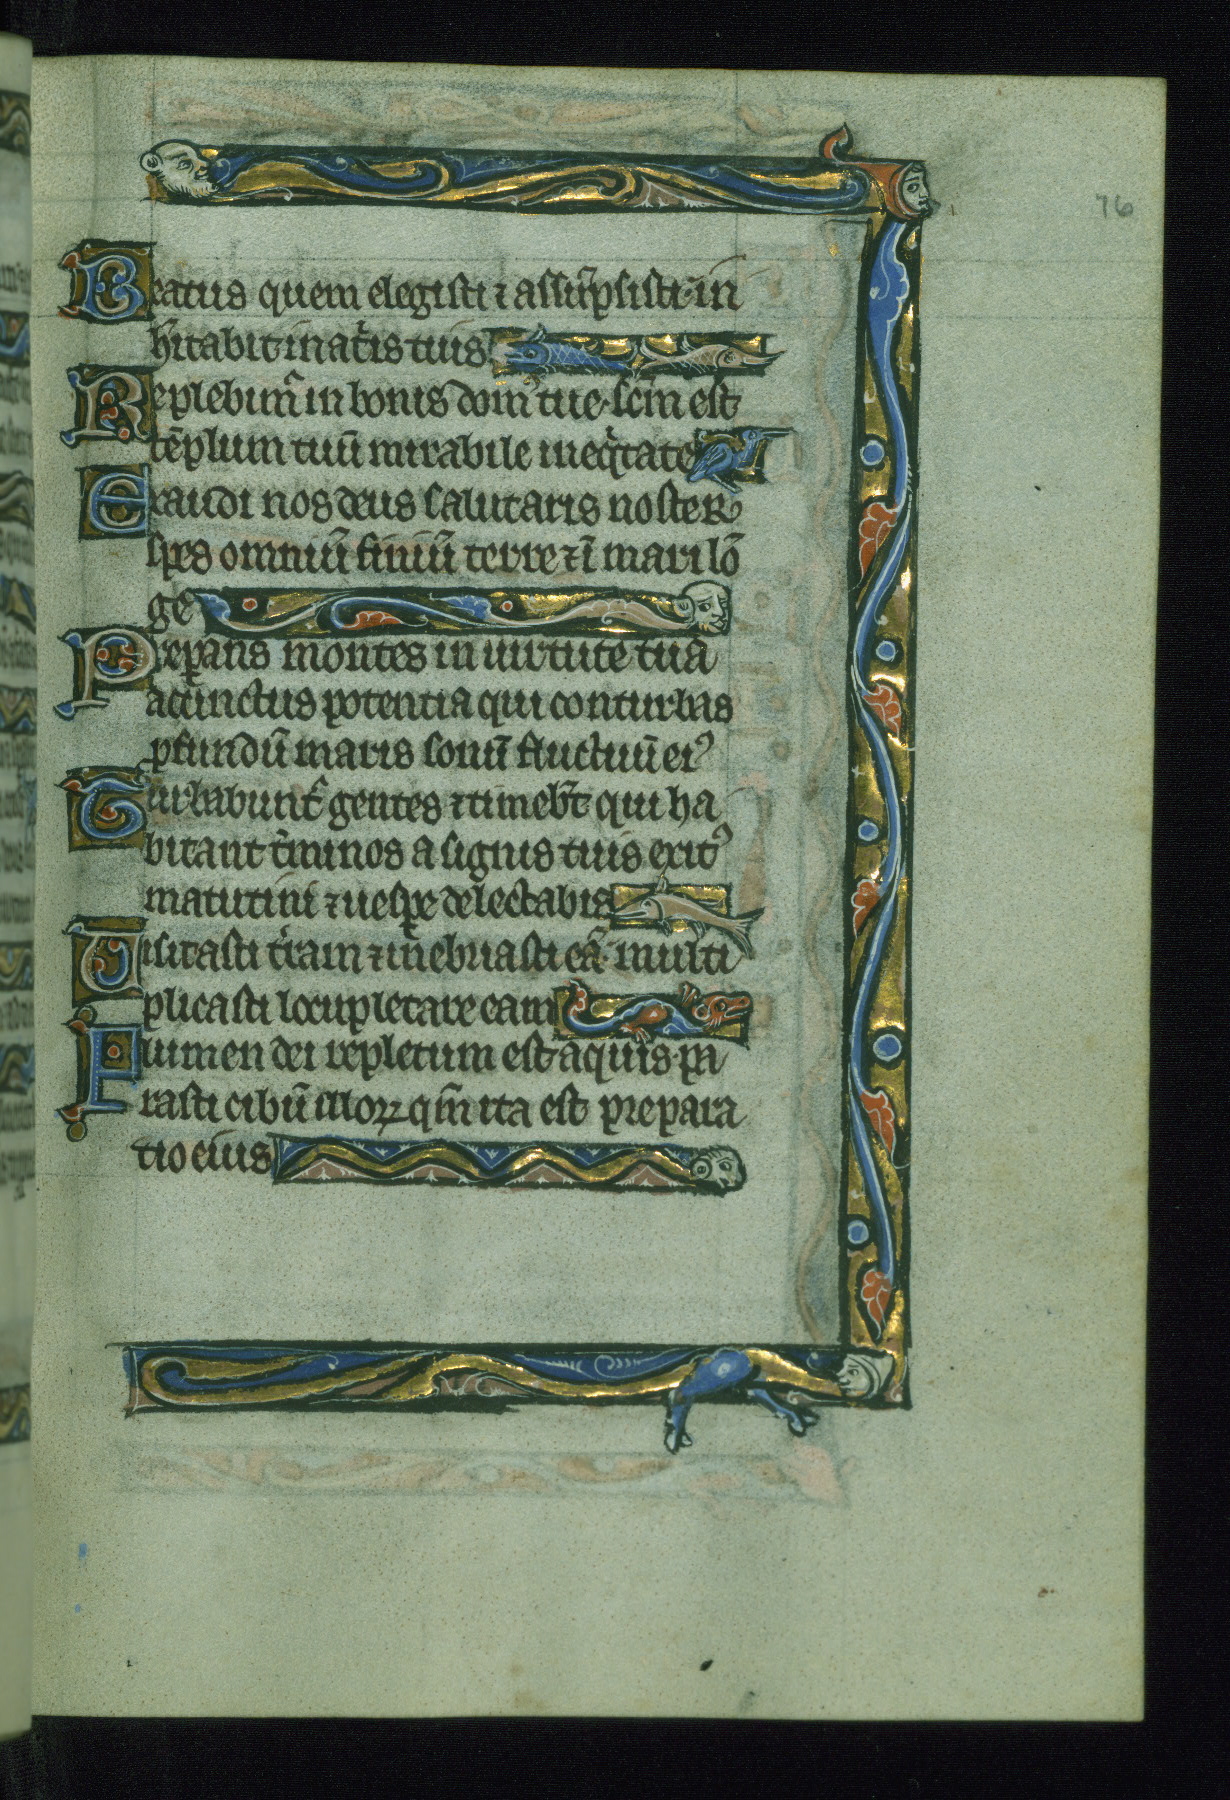 76
Beatus quem elegisti ⁊ assūpsisti· in
hītabit in at̾is tuis
Replebim̾ in bonis dom̾ tue· sc̄m est
tēplum tuū mirabile in eq̾tate
Exaudi nos deus salutaris noster
spes omniū finiū terre ⁊ ī mari lō
ge
Preparans montes in uirtute tua
accinctus potentia qui conturbas
ꝓfundū maris sonū fluctuū ei᾽
Turbabunt̾ gentes ⁊ timebt̄ qui ha
bitant t̾minos a signis tuis exit᾽
matutini ⁊ uespe delectabis
Uisitasti t̾ram ⁊ inebriasti eā· multi
plicasti locupletare eam
Flumen dei repletum est aquis· pa
rasti cibū illoꝝ qm̄ ita est prepara
tio eius